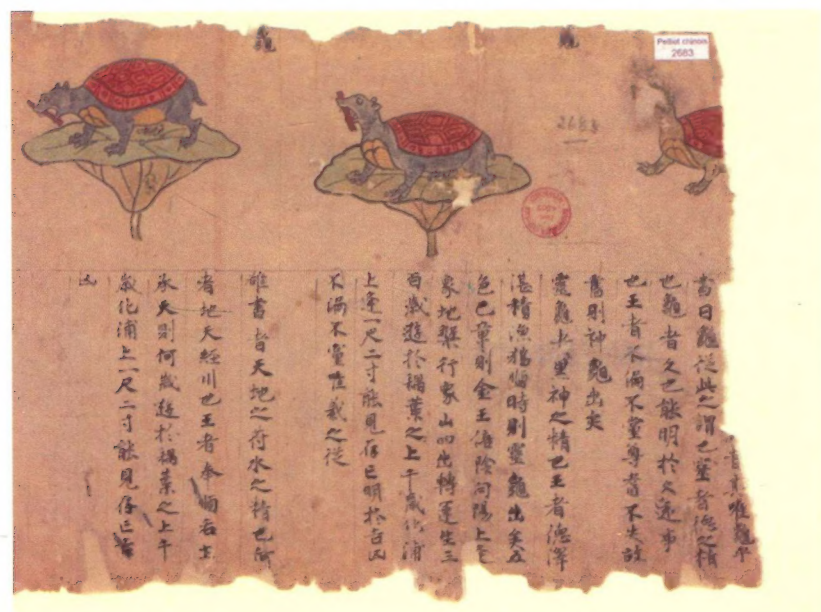 Pelliot chinois
2683
2683
龜
龜
其唯龜乎
書曰龜從此之謂也靈者德之精
也龜者久也能明於久遠事
也王者不偏不黨尊耆不失故
舊則神龜出矣
靈龜者黑神之精也王者德澤
湛積漁獵順時則靈龜出矣五
色巴章則金玉倍陰向陽上
象地槃行象山四出轉運生三
百歲遊於蕅葉之上千歲化浦
上逢一尺二寸能見存亡明於吉凶
不偏不黨唯義之從
雒書者天地之符水之精也河
者地天經川也王者奉順后土
承天則河歲遊於蕅葉之上千
歲化浦上一尺二寸能見存亡吉
凶